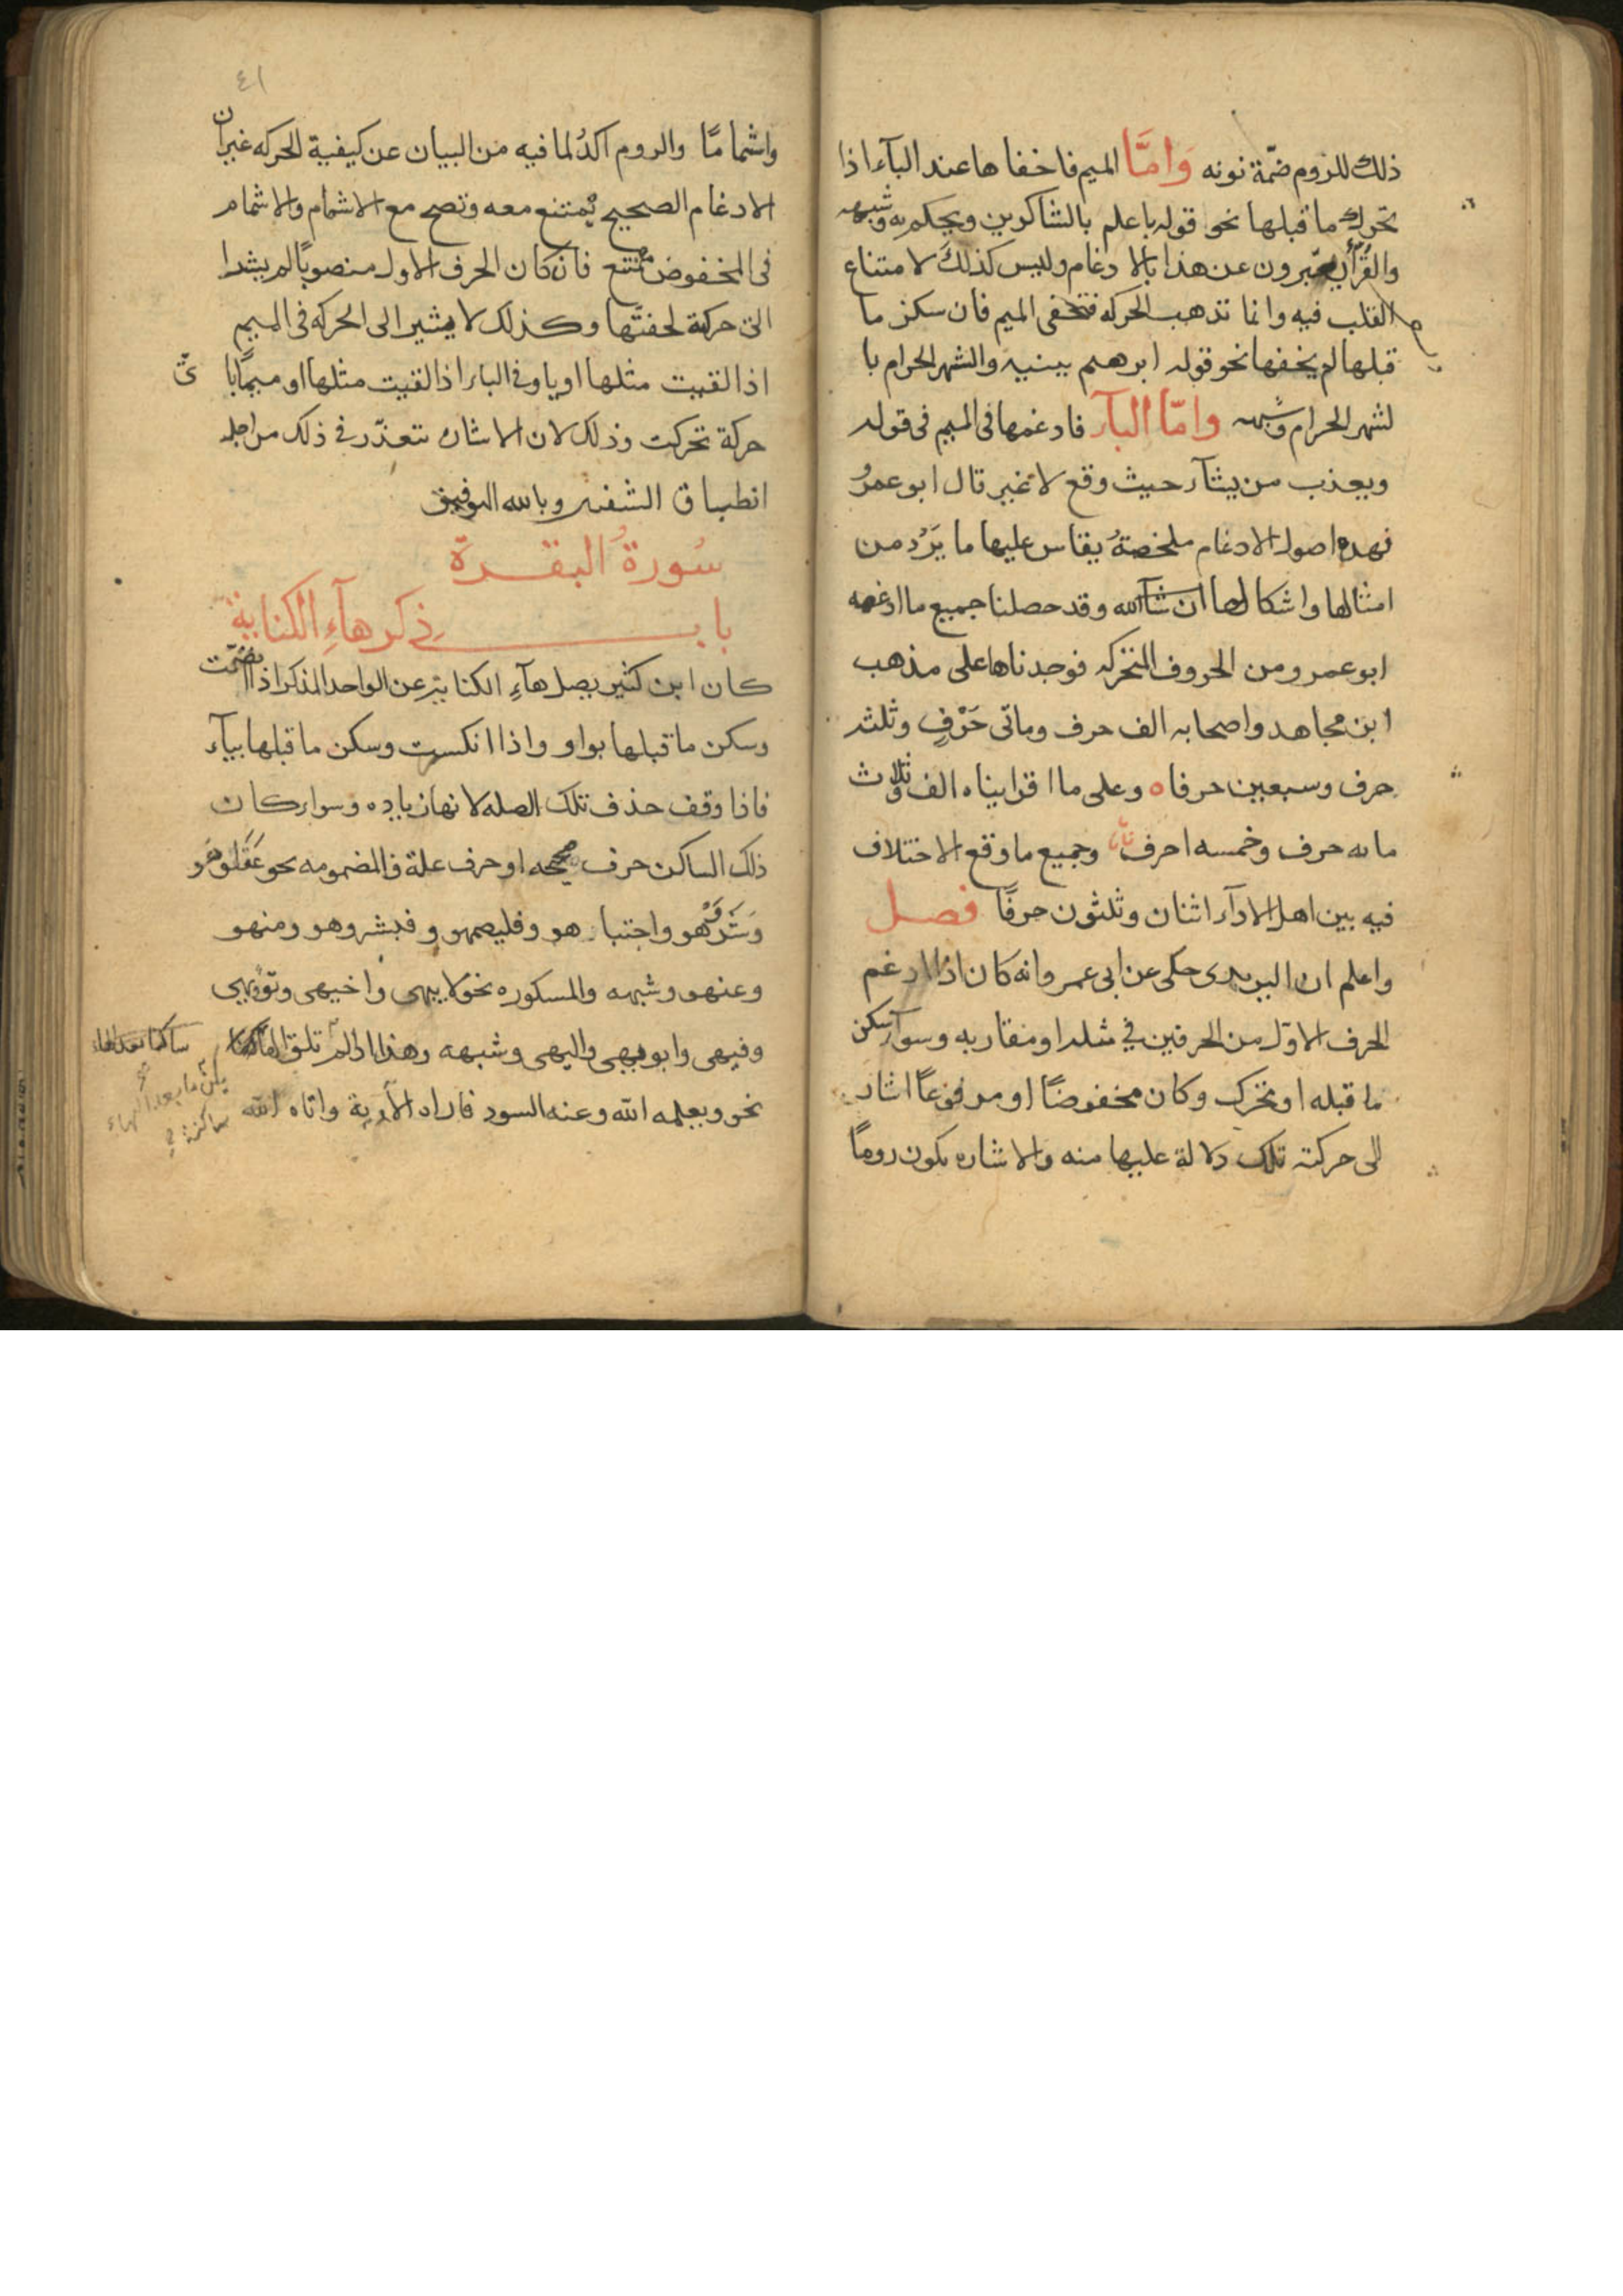 ذلك للزوم ضمّة نونه وَامَّا الميم فاخفاها عند البآء اذا
تحرك ما قبلها نحو قوله باعلم بالشاكرين ويحكم به وشبهه
والقُرّآء يعبّرون عن هذا بالادغام وليس كذلك لامتناع
القلب فيه وانما تذهب الحركة فتخفى الميم فان سكن ما
قبلها لم يخفها نحو قوله ابرهيم بينيه والشهر الحرام با
لشهر الحرام وشبهه وامّا البآء فادغمها فى الميم فى قوله
ويعذب من يشآء حيث وقع لا غير قال ابو عمرو
فهذه اصول الادغام ملخصةُ يقاس عليها ما يَرُد من
امثالها واشكالها ان شآء الله وقد حصلنا جميع ما ادغمه
ابو عمرو من الحروف المتحركه فوجدناها على مذهب
ابن مجاهد واصحابه الف حرف وماتى حَرْفٍ وثلثه
حرف وسبعين حرفا ه وعلى ما اقراناه الف وثلاث
مائه حرف وخمسه احرف وجميع ما وقع الاختلاف
فيه بين اهل الادآء اثنان وثلثون حرفًا فصل
واعلم ان اليزيدى حكى عن ابى عمرو انه كان اذا ادغم
الحرف الاوّل من الحرفين فى مثله او مقاربه وسوآء سكن
ما قبله او تحرك وكان مخفوضًا او مرفوعًا اشار
الى حركته تلك دلالة عليها منه والاشاره تكون روماً
٤١
واشمامًا والروم اكدُ لما فيه من البيان عن كيفية الحركه غير ان
الادغام الصحيح يُمتنع معه وتصح مع الاشمام والاشمام
فى المخفوض ممتنع فان كان الحرف الاول منصوبًا لم يشر ا
الى حركته لخفتها وكذلك لا يشير الى الحركه فى الميم
اذا لقيت مثلها او باء وفى الباء اذا لقيت مثلها او ميمًا با ىّ
حركة تحركت وذلك لان الاشاره تتعذّر فى ذلك من اجل
انطباق الشفتين وبالله التوفيق
سُورةُ البقرة
باب ذكر هآءِ الكناية
كان ابن كثير يصل هآءِ الكناية عن الواحد المذكر اذا انضمّت
وسكن ما قبلها بواو واذا انكسرت وسكن ما قبلها بيآء
فاذا وقف حذف تلك الصله لانها زياده وسواء كان
ذلك الساكن حرف صحيحه او حرف علة فالمضمومه نحو عَقَلوهو
وَشَرَوْهو واجتباهو وفليصمهو وفبشروهو ومنهو
وعنهو وشبهه والمسكوره نحو لابيهى واخيهى وتؤيهى
وفيهى وابويهى واليهى وشبهه وهذا اذا لم تلق الهآء ساكنا
يكن ما بعد الهاء
ساكنة
نحو ويعلمه الله وعنه السوء فاراه الآية واتاه الله